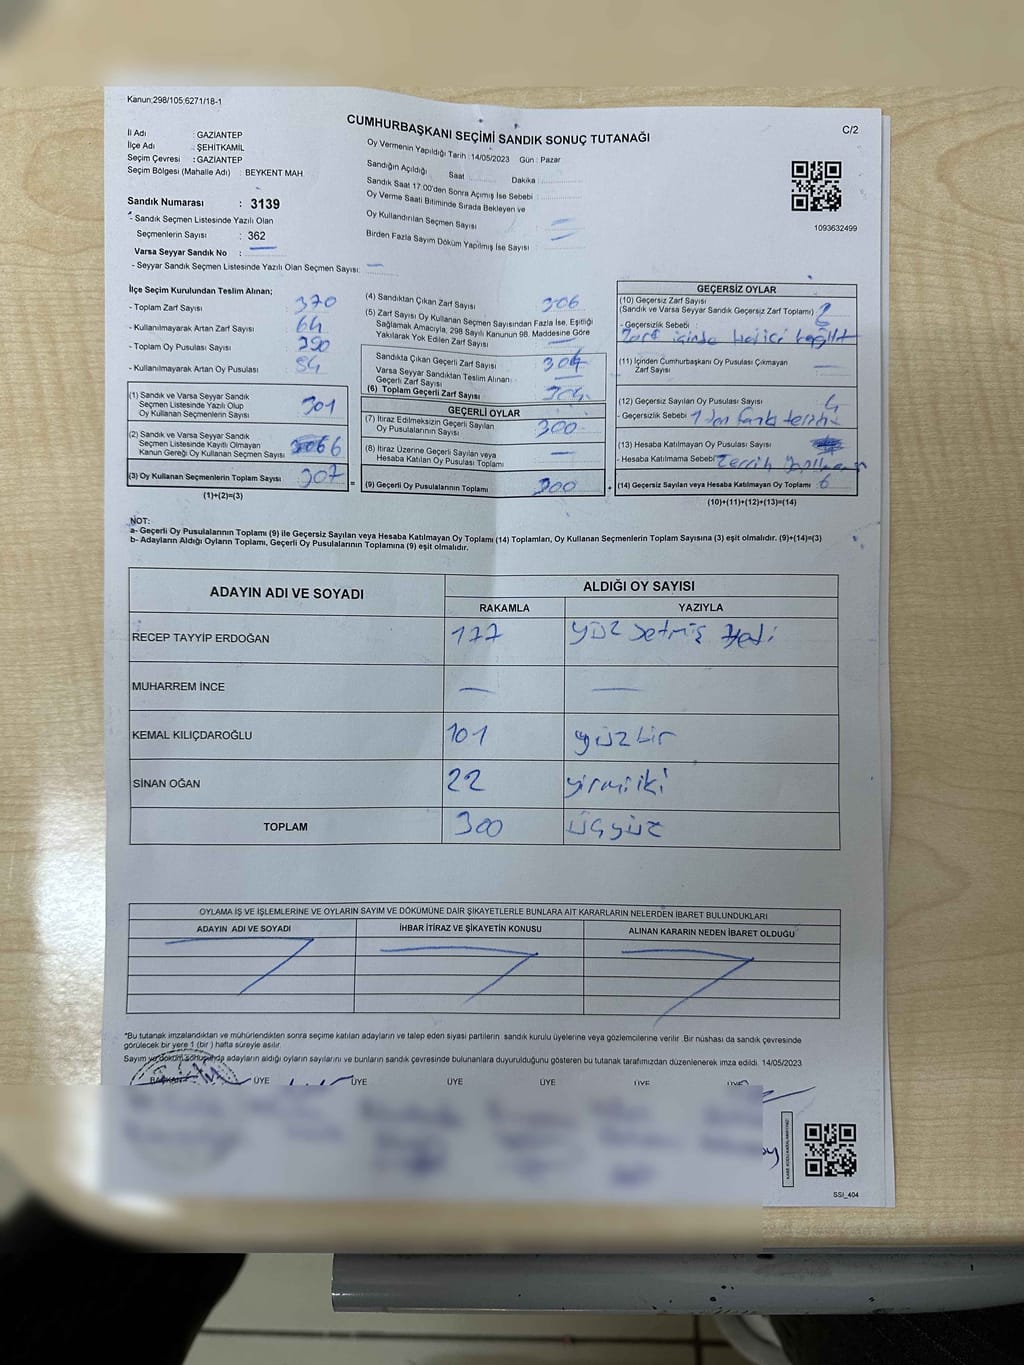 Kanun;298/105;6271/18-1
CUMHURBAŞKANI SEÇİMİ SANDIK SONUÇ TUTANAĞI
C/2
İl Adı : GAZIANTEP
İlçe Adı : ŞEHİTKAMİL
Seçim Çevresi : GAZIANTEP
Seçim Bölgesi (Mahalle Adı) : BEYKENT MAH.
Oy Vermenin Yapıldığı Tarih : 14/05/2023 Gün : Pazar
Sandığın Açıldığı Saat Dakika :
Sandık Saat 17:00'den Sonra Açımış İse Sebebi :
Oy Verme Saati Bitiminde Sırada Bekleyen ve
Oy Kullandırılan Seçmen Sayısı
Birden Fazla Sayım Döküm Yapılmış İse Sayısı :
1093632499
Sandık Numarası : 3139
- Sandık Seçmen Listesinde Yazılı Olan
Seçmenlerin Sayısı : 362
Varsa Seyyar Sandık No :
- Seyyar Sandık Seçmen Listesinde Yazılı Olan Seçmen Sayısı: —
İlçe Seçim Kurulundan Teslim Alınan;
- Toplam Zarf Sayısı : 370
- Kullanılmayarak Artan Zarf Sayısı : 64
- Toplam Oy Pusulası Sayısı : 390
- Kullanılmayarak Artan Oy Pusulası : 84
(1) Sandık ve Varsa Seyyar Sandık
Seçmen Listesinde Yazılı Olup
Oy Kullanan Seçmenlerin Sayısı : 301
(2) Sandık ve Varsa Seyyar Sandık
Seçmen Listesinde Kayıtlı Olmayan
Kanun Gereği Oy Kullanan Seçmen Sayısı
(3) Oy Kullanan Seçmenlerin Toplam Sayısı : 307 =
(1)+(2)=(3)
(4) Sandıktan Çıkan Zarf Sayısı : 306
(5) Zarf Sayısı Oy Kullanan Seçmen Sayısından Fazla İse, Eşitliği
Sağlamak Amacıyla, 298 Sayılı Kanunun 98. Maddesine Göre
Yakılarak Yok Edilen Zarf Sayısı : —
Sandıkta Çıkan Geçerli Zarf Sayısı : 304
Varsa Seyyar Sandıktan Teslim Alınan
Geçerli Zarf Sayısı : —
(6) Toplam Geçerli Zarf Sayısı : 304
GEÇERLİ OYLAR
(7) İtiraz Edilmeksizin Geçerli Sayılan
Oy Pusulalarının Sayısı : 300
(8) İtiraz Üzerine Geçerli Sayılan veya
Hesaba Katılan Oy Pusulası Toplamı : —
(9) Geçerli Oy Pusulalarının Toplamı : 300 +
GEÇERSİZ OYLAR
(10) Geçersiz Zarf Sayısı
(Sandık ve Varsa Seyyar Sandık Geçersiz Zarf Toplamı) : 2
- Geçersizlik Sebebi :
Zarf içinde
(11) İçinden Cumhurbaşkanı Oy Pusulası Çıkmayan
Zarf Sayısı : —
(12) Geçersiz Sayılan Oy Pusulası Sayısı : 4
- Geçersizlik Sebebi : 1 den fazla tercih
(13) Hesaba Katılmayan Oy Pusulası Sayısı :
- Hesaba Katılmama Sebebi : Tercih
(14) Geçersiz Sayılan veya Hesaba Katılmayan Oy Toplamı : 6
(10)+(11)+(12)+(13)=(14)
NOT:
a- Geçerli Oy Pusulalarının Toplamı (9) ile Geçersiz Sayılan veya Hesaba Katılmayan Oy Toplamı (14) Toplamları, Oy Kullanan Seçmenlerin Toplam Sayısına (3) eşit olmalıdır. (9)+(14)=(3)
b- Adayların Aldığı Oyların Toplamı, Geçerli Oy Pusulalarının Toplamına (9) eşit olmalıdır.
ADAYIN ADI VE SOYADI
ALDIĞI OY SAYISI
RAKAMLA YAZIYLA
RECEP TAYYİP ERDOĞAN 177 yüz yetmiş yedi
MUHARREM İNCE — —
KEMAL KILIÇDAROĞLU 101 yüzbir
SİNAN OĞAN 22 yirmiiki
TOPLAM 300 üçyüz
OYLAMA İŞ VE İŞLEMLERİNE VE OYLARIN SAYIM VE DÖKÜMÜNE DAİR ŞİKAYETLERLE BUNLARA AİT KARARLARIN NELERDEN İBARET BULUNDUKLARI
ADAYIN ADI VE SOYADI İHBAR İTİRAZ VE ŞİKAYETİN KONUSU ALINAN KARARIN NEDEN İBARET OLDUĞU
*Bu tutanak imzalandıktan ve mühürlendikten sonra seçime katılan adayların ve talep eden siyasi partilerin sandık kurulu üyelerine veya gözlemcilerine verilir. Bir nüshası da sandık çevresinde
görülecek bir yere 1 (bir) hafta süreyle asılır.
Sayım ve döküm sonucunda adayların aldığı oyların sayılarını ve bunların sandık çevresinde bulunanlara duyurulduğunu gösteren bu tutanak tarafımızdan düzenlenerek imza edildi. 14/05/2023
BAŞKAN ÜYE ÜYE ÜYE ÜYE ÜYE ÜYE
SSİ_404